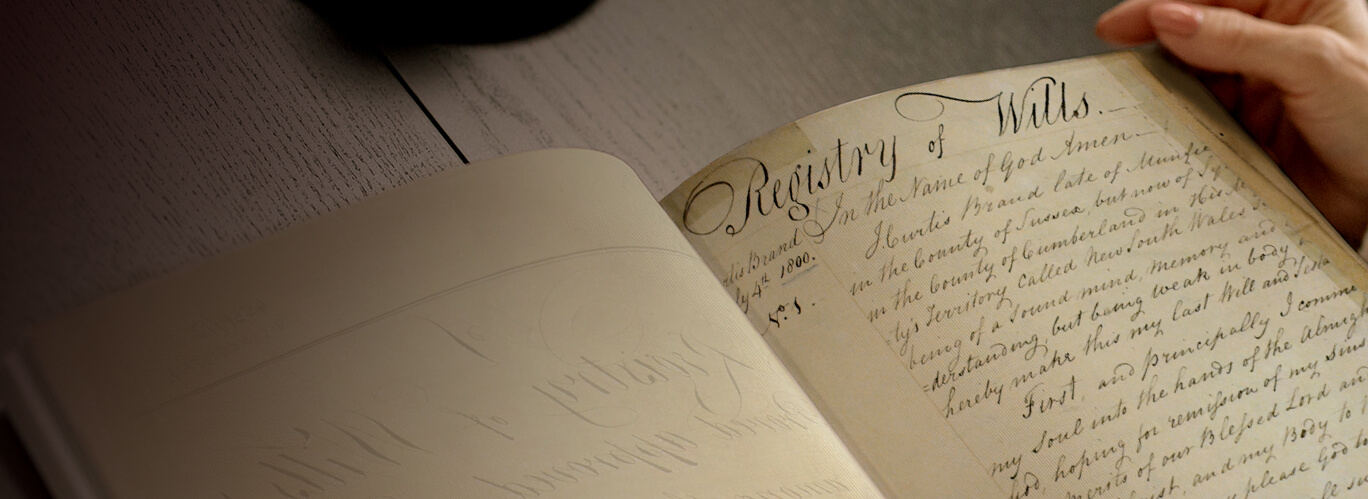 Registry of Wills.
In the Name of God Amen
Curtis Brand late of
tis Brand
ly 4th 1800.
No. 1.
in the County of Sussex, but now of Sy
in the County of Cumberland in His
ty's Territory called New South Wales
being of a Sound mind, Memory and
derstanding, but being weak in body
hereby make this my last Will and Testa
First, and principally I comme
my Soul into the hands of the Almigh
God, hoping for remission of my Sins
merits of our Blessed Lord and
ist, and my Body to
please God to